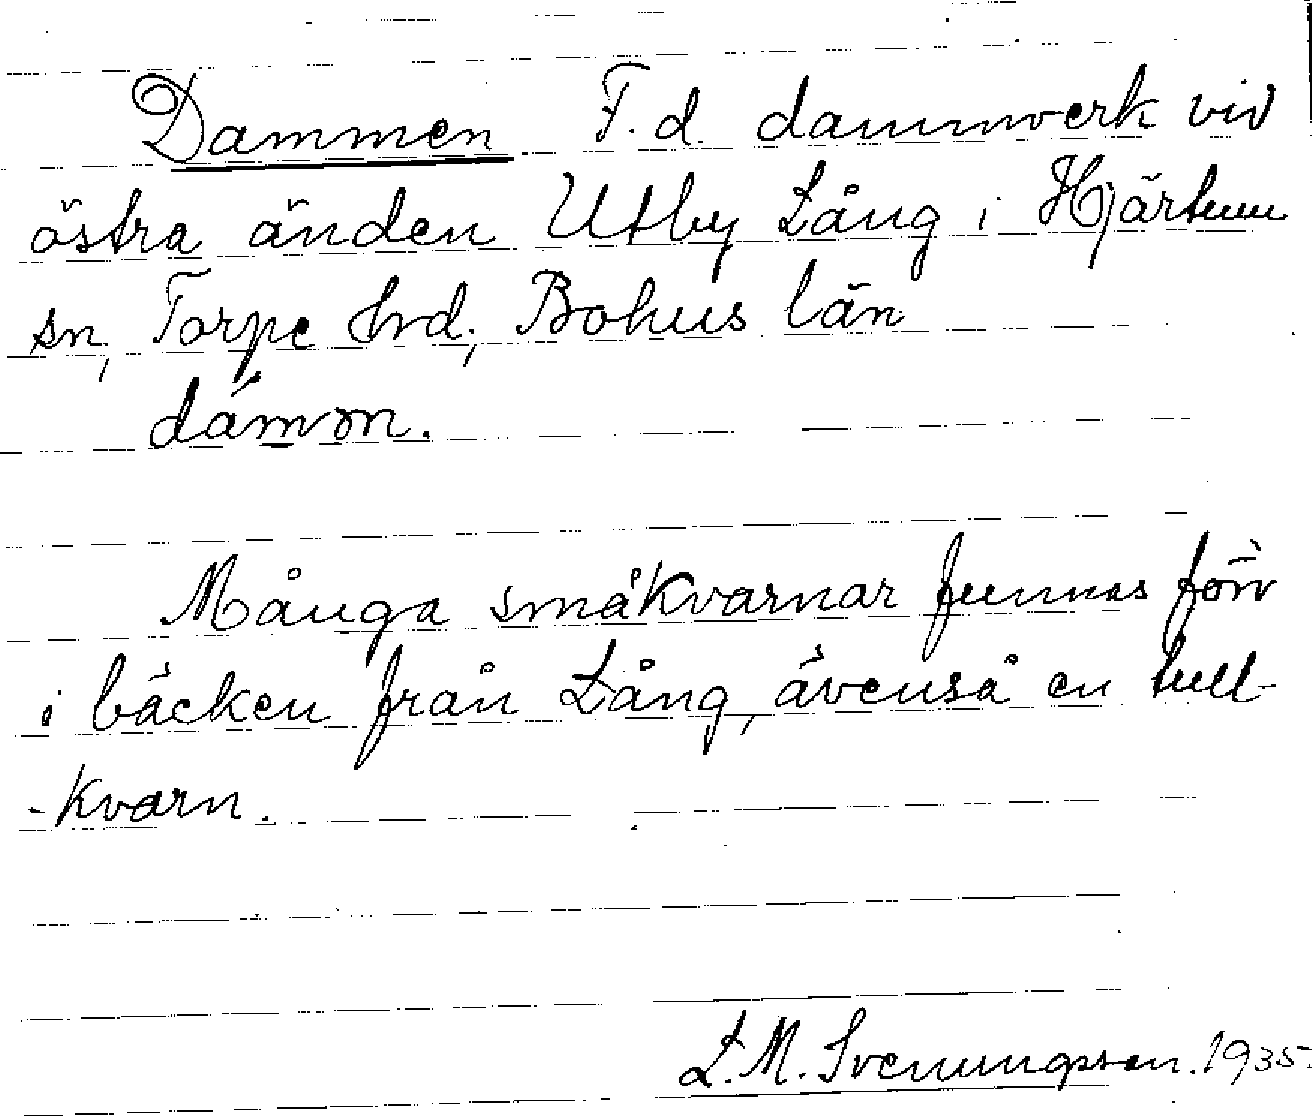 Dammen F. d. dammverk vid
östra änden Utby Lång i Hjärtum
sn, Torpe hrd, Bohus län
dámmn.
Många småkvarnar funnos förr
i bäcken från Lång, ävenså en tull-
-kvarn.
L. M. Svenungsson. 1935.